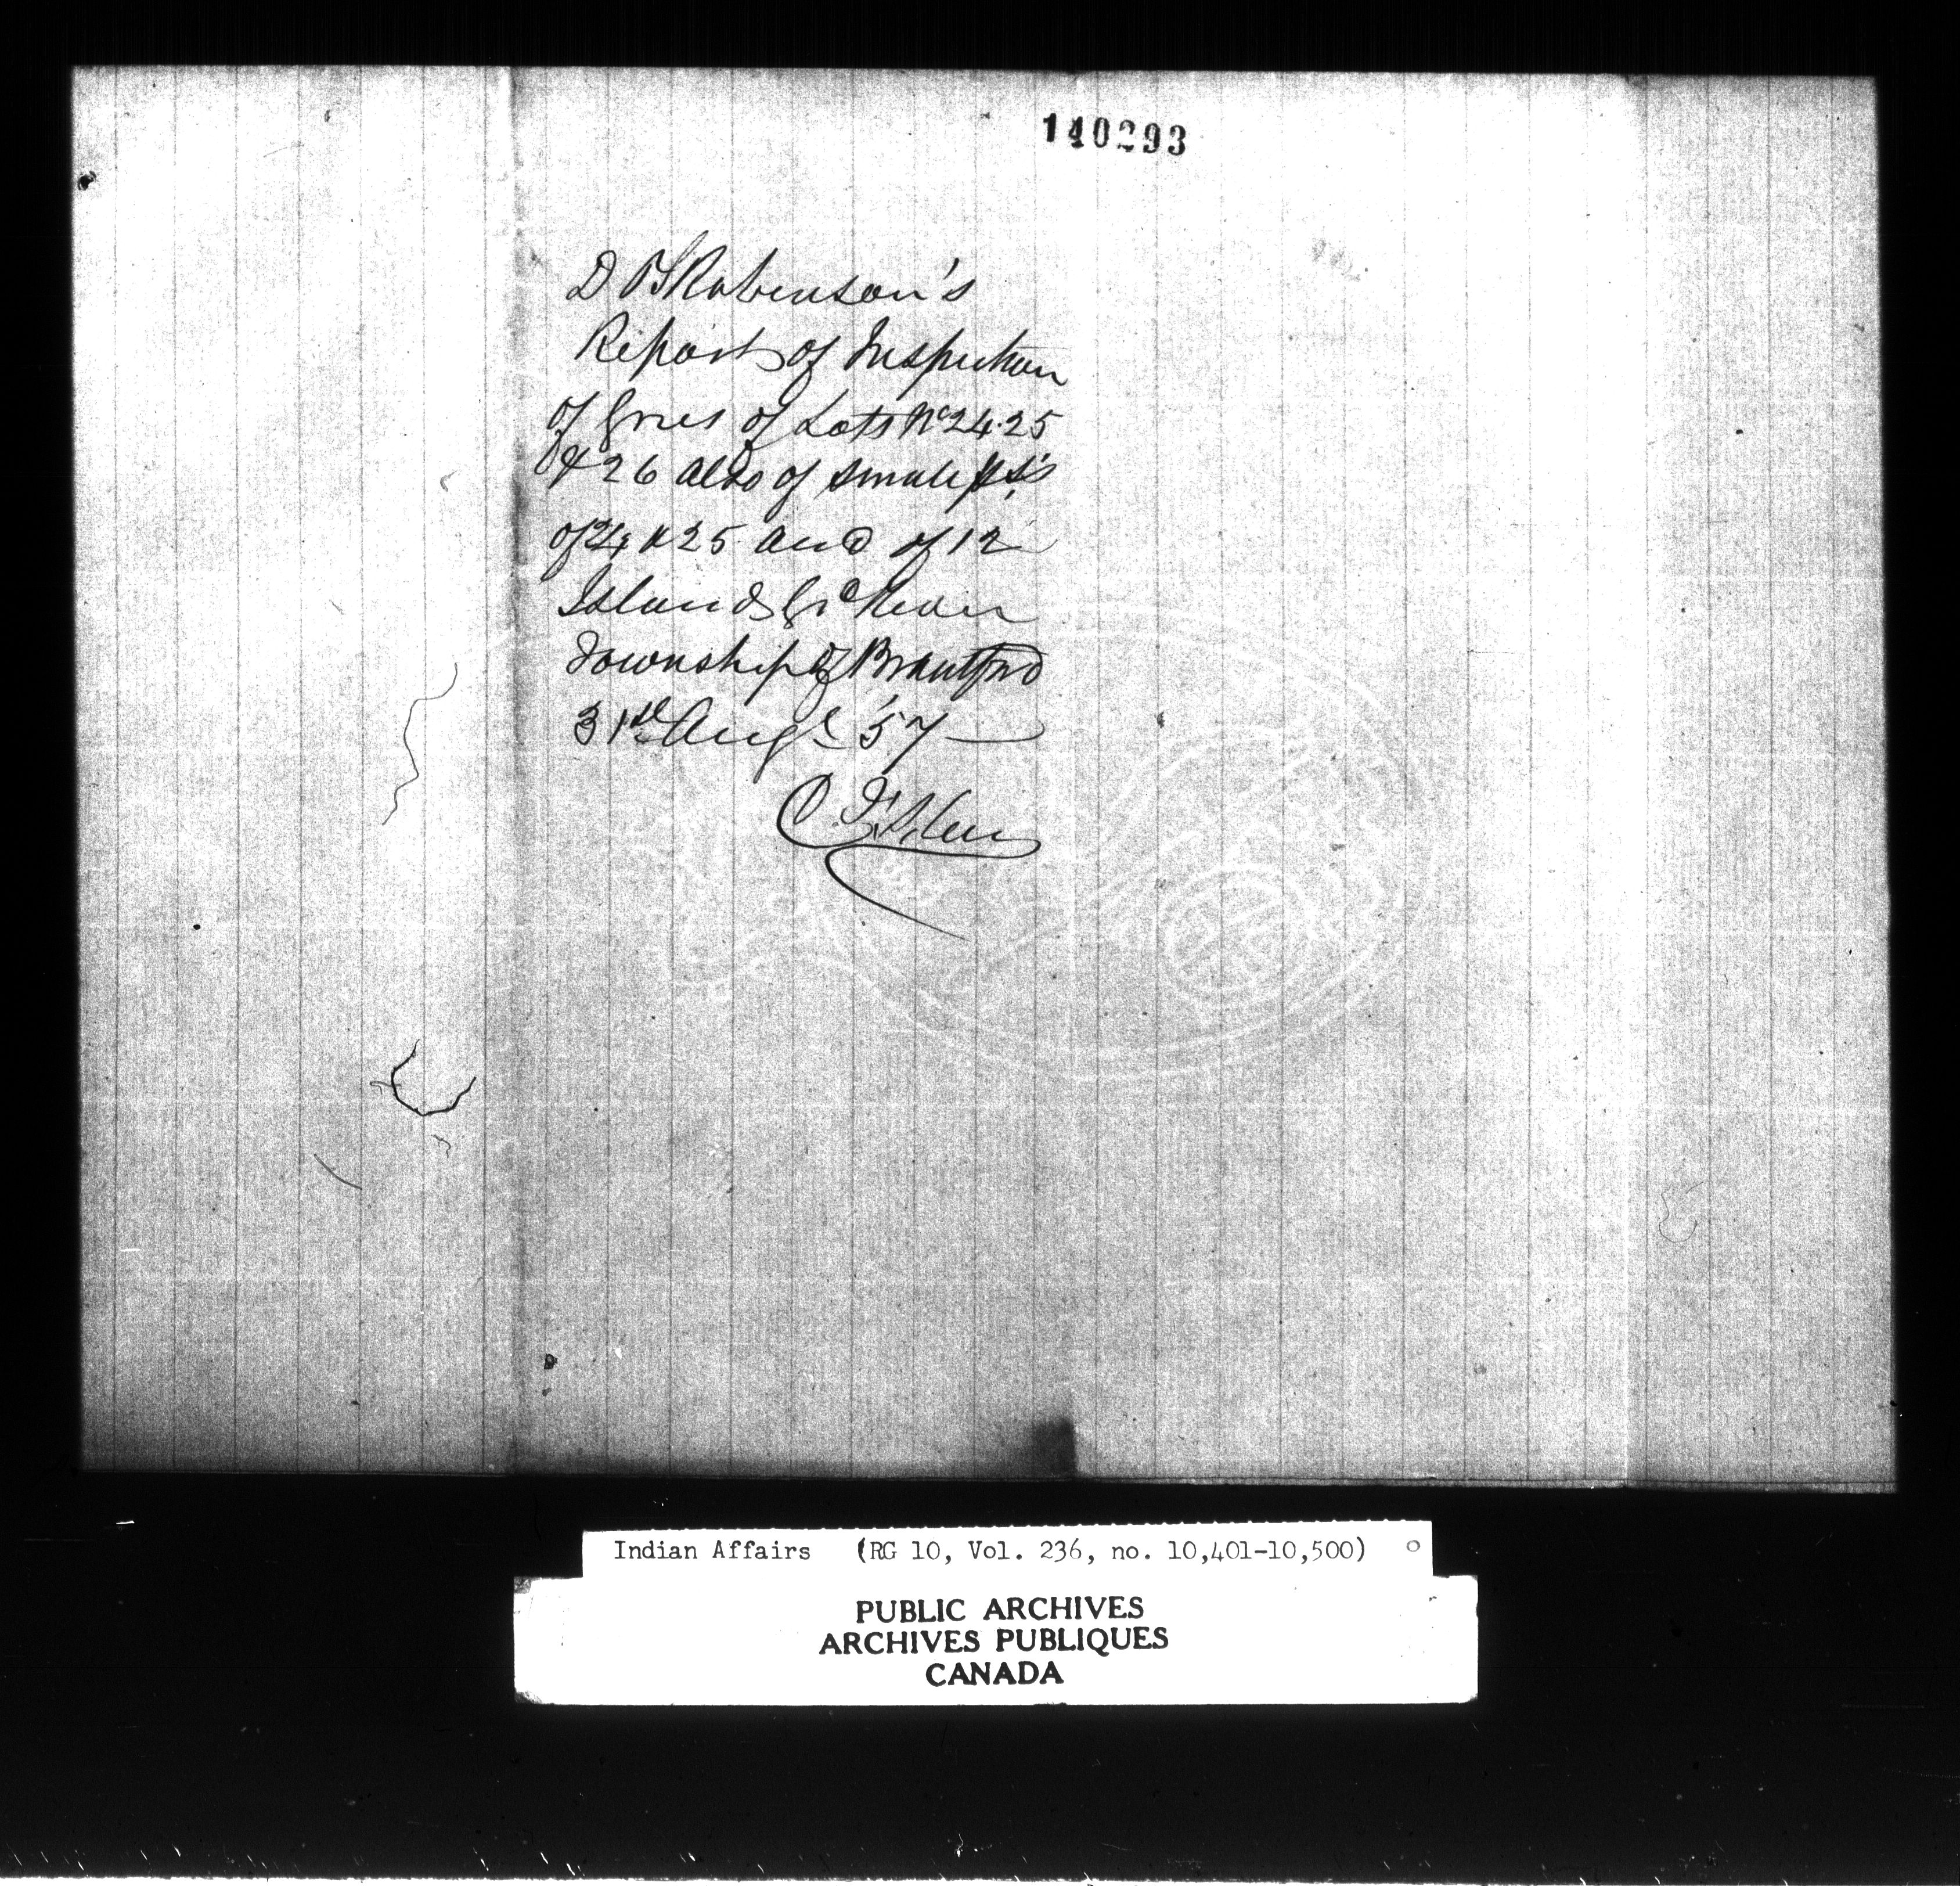 140293
Robinson's
Report of Inspection
of Gores of Lots No 24.25
& 26 also of small
of 24 & 25 and of 12
Island Gd River
Township of Brantford
31st Augt '57
Indian Affairs (RG 10, Vol. 236, no. 10,401-10,500)
PUBLIC ARCHIVES
ARCHIVES PUBLIQUES
CANADA